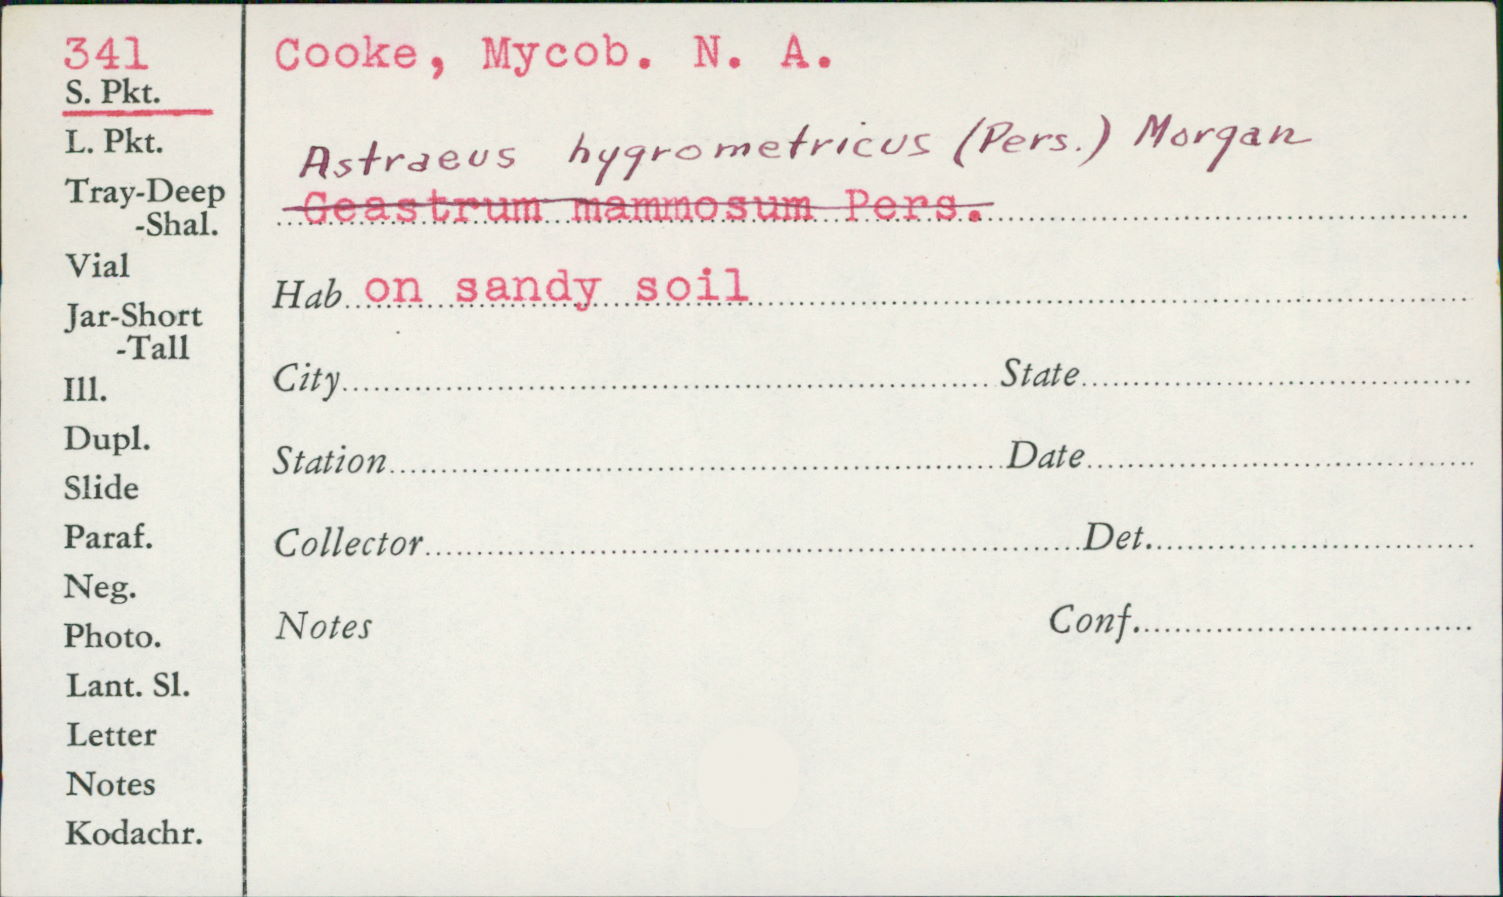 341
S. Pkt.
L. Pkt.
Tray-Deep
-Shal.
Vial
Jar-Short
-Tall
Ill.
Dupl.
Slide
Paraf.
Neg.
Photo.
Lant. Sl.
Letter
Notes
Kodachr.
Cooke, Mycob. N. A.
Astraeus hygrometricus (Pers.) Morgan
Geastrum mammosum Pers.
Hab on sandy soil
City State
Station Date
Collector Det.
Notes Conf.